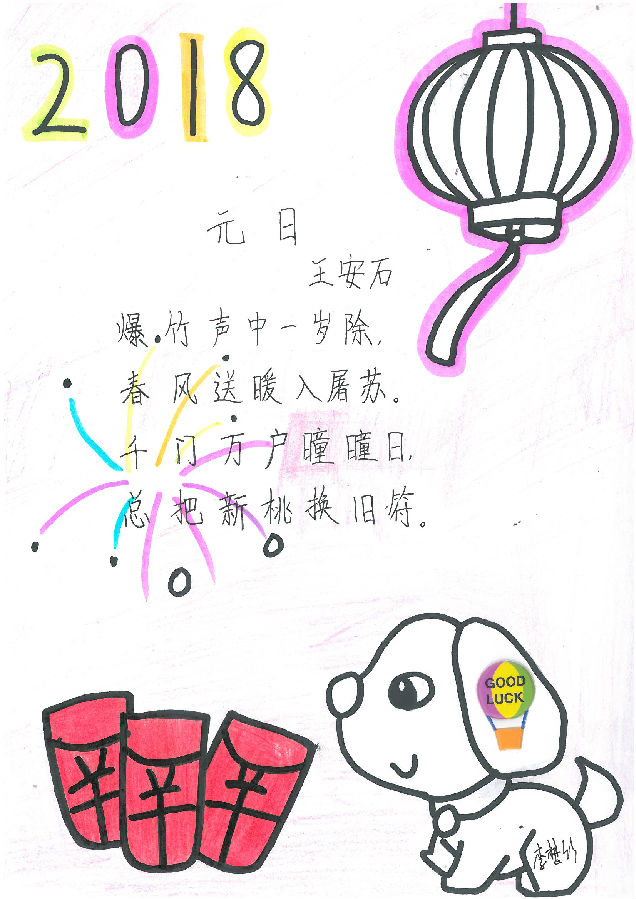 2018
元日
王安石
爆竹声中一岁除,
春风送暖入屠苏。
千门万户瞳瞳日,
总把新桃换旧符。
GOOD
LUCK